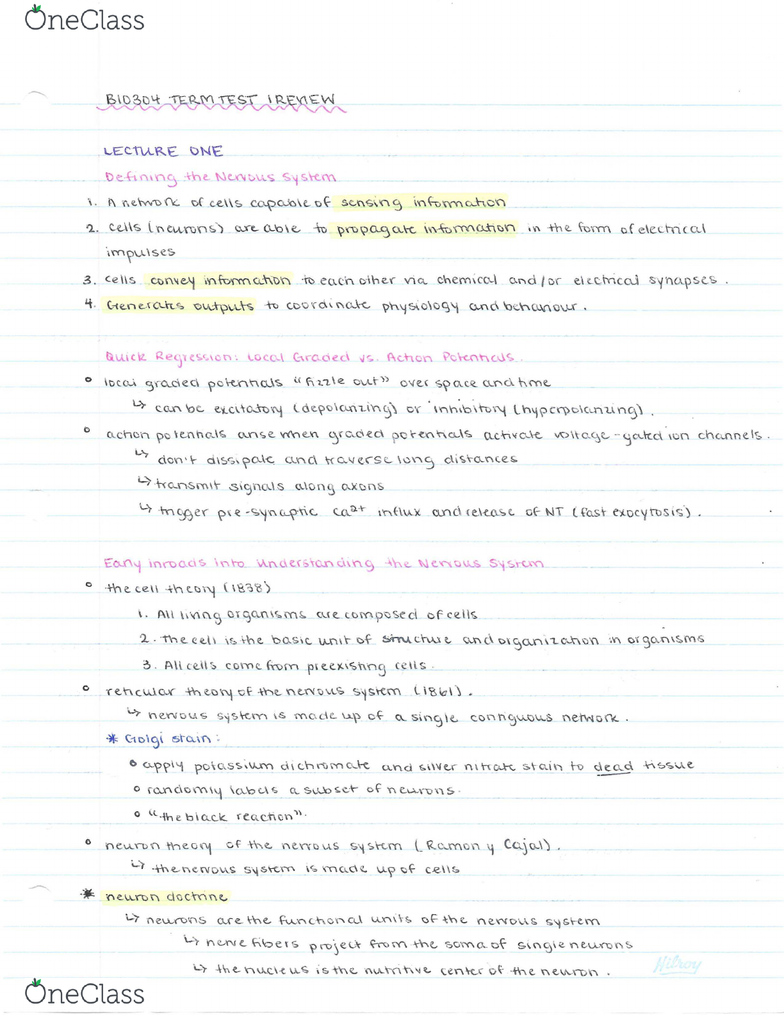 OneClass
BIO304 TERM TEST 1 REVIEW
LECTURE ONE
Defining the Nervous System
1. A network of cells capable of sensing information
2. cells (neurons) are able to propagate information in the form of electrical
impulses
3. cells convey information to each other via chemical and/or electrical synapses.
4. Generates outputs to coordinate physiology and behaviour.
Quick Regression: Local Graded vs. Action Potentials.
° local graded potentials "fizzle out" over space and time
↳ can be excitatory (depolarizing) or inhibitory (hyperpolarizing).
° action potentials arise when graded potentials activate voltage-gated ion channels.
↳ don't dissipate and traverse long distances
↳ transmit signals along axons
↳ trigger pre-synaptic Ca2+ influx and release of NT (fast exocytosis).
Early inroads into Understanding the Nervous System
° the cell theory (1838)
1. All living organisms are composed of cells
2. The cell is the basic unit of structure and organization in organisms
3. All cells come from preexisting cells.
° reticular theory of the nervous system (1861).
↳ nervous system is made up of a single contiguous network.
* Golgi stain:
° apply potassium dichromate and silver nitrate stain to dead tissue
° randomly labels a subset of neurons.
° "the black reaction".
° neuron theory of the nervous system (Ramon y Cajal).
↳ the nervous system is made up of cells
* neuron doctrine
↳ neurons are the functional units of the nervous system
↳ nerve fibers project from the soma of single neurons
↳ the nucleus is the nutritive center of the neuron.
Hilroy
OneClass